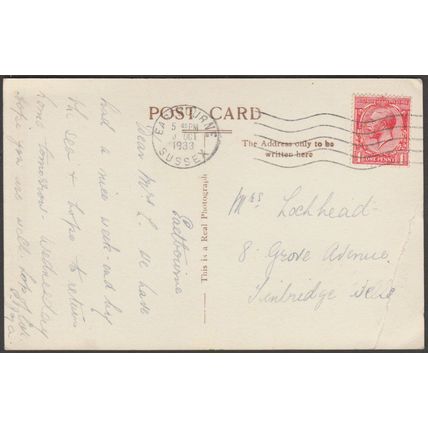 POST CARD
EASTBOURNE
5 PM
OCT
1933
SUSSEX
ONE PENNY
The Address only to be
written here
This is a Real Photograph
Mrs Lockhead
8 Grove Avenue
Tunbridge Wells
Eastbourne
Dear Mrs L. We have
had a nice week-end by
the sea & hope to return
home tomorrow Wednesday
hope you are well